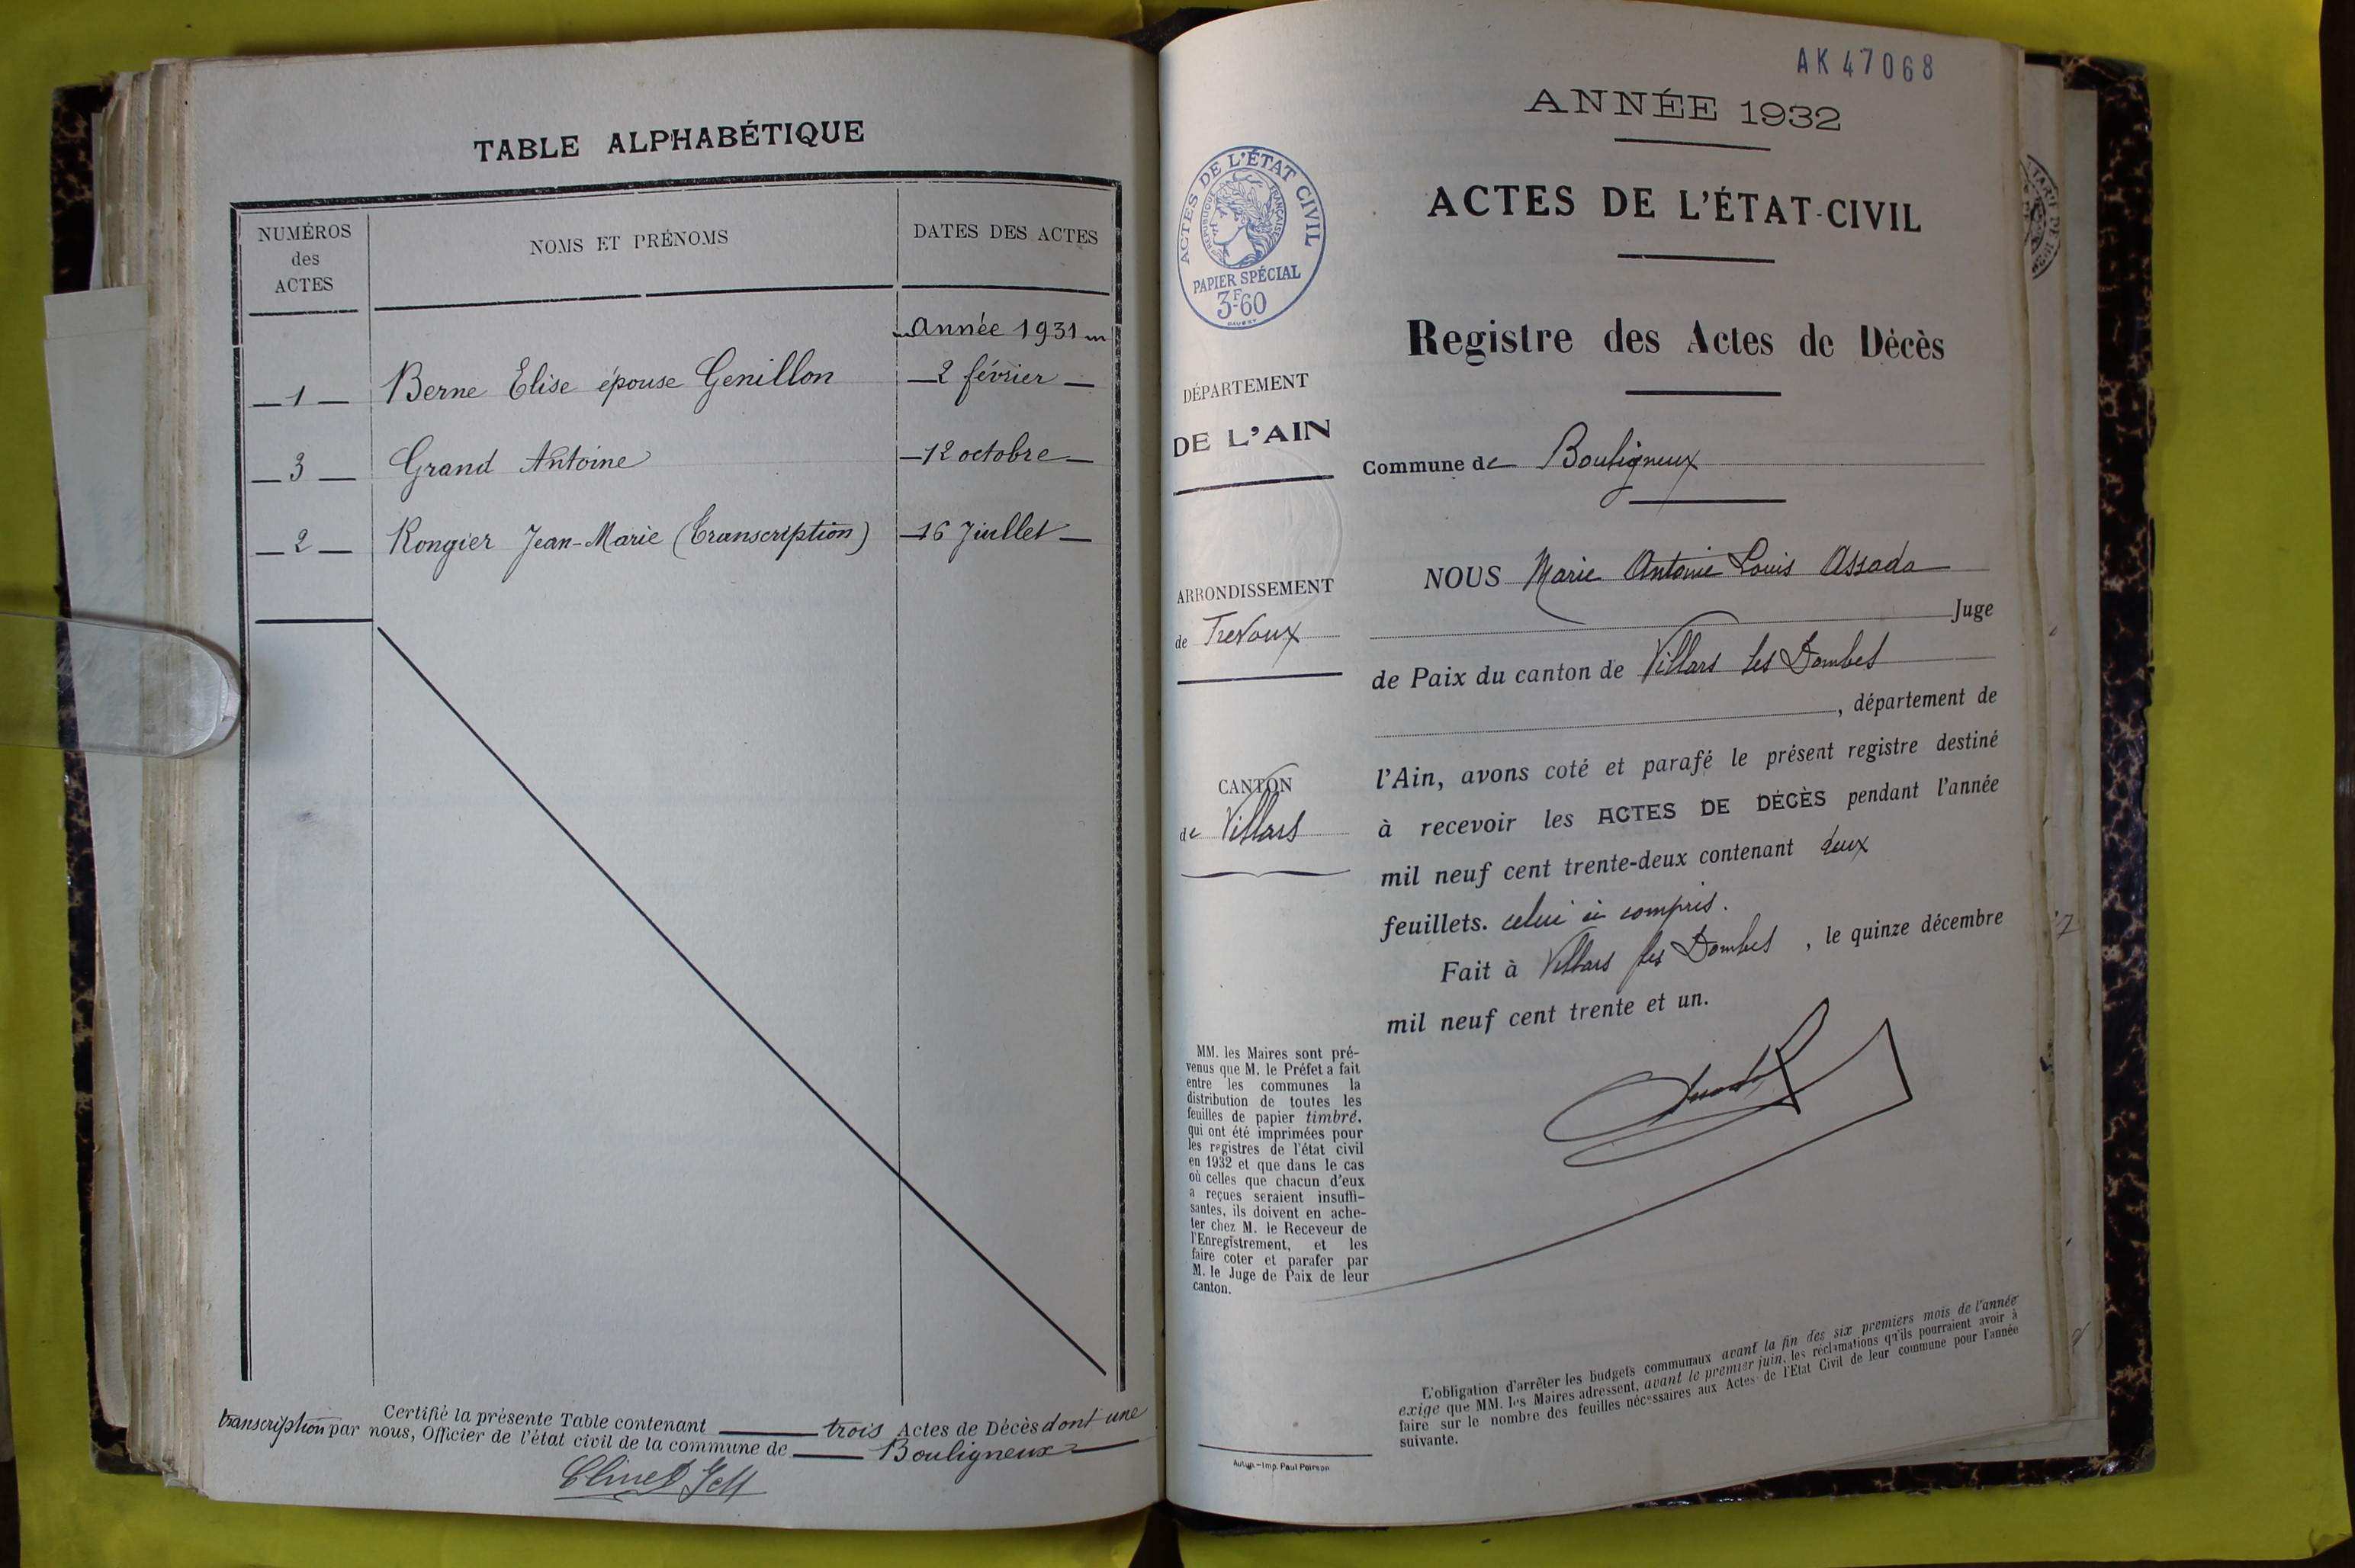 TABLE ALPHABÉTIQUE
NUMÉROS
des
ACTES
NOMS ET PRÉNOMS
DATES DES ACTES
Année 1931
1 Berne Elise épouse Genillon 2 février
3 Grand Antoine 12 octobre
2 Rongier Jean-Marie (transcription) 16 Juillet
Certifié la présente Table contenant trois Actes de Décès dont une
transcription par nous, Officier de l'état civil de la commune de Bouligneux
AK 47068
ANNÉE 1932
ACTES DE L'ÉTAT-CIVIL
Registre des Actes de Décès
ACTES DE L'ÉTAT CIVIL
RÉPUBLIQUE FRANÇAISE
PAPIER SPÉCIAL
3F60
DÉPARTEMENT
DE L'AIN
Commune de Bouligneux
ARRONDISSEMENT
de Trevoux
CANTON
de Villars
NOUS Marie Antoine Louis Assada
Juge
de Paix du canton de Villars les Dombes
, département de
l'Ain, avons coté et parafé le présent registre destiné
à recevoir les ACTES DE DÉCÈS pendant l'année
mil neuf cent trente-deux contenant deux
feuillets. celui ci compris.
Fait à Villars les Dombes , le quinze décembre
mil neuf cent trente et un.
MM. les Maires sont pré-
venus que M. le Préfet a fait
entre les communes la
distribution de toutes les
feuilles de papier timbré,
qui ont été imprimées pour
les registres de l'état civil
en 1932 et que dans le cas
où celles que chacun d'eux
a reçues seraient insuffi-
santes, ils doivent en ache-
ter chez M. le Receveur de
l'Enregistrement, et les
faire coter et parafer par
M. le Juge de Paix de leur
canton.
L'obligation d'arrêter les budgets communaux avant la fin des six premiers mois de l'année
exige que MM. les Maires adressent, avant le premier juin, les réclamations qu'ils pourraient avoir à
faire sur le nombre des feuilles nécessaires aux Actes de l'Etat Civil de leur commune pour l'année
suivante.
Autun.-Imp. Paul Poirson